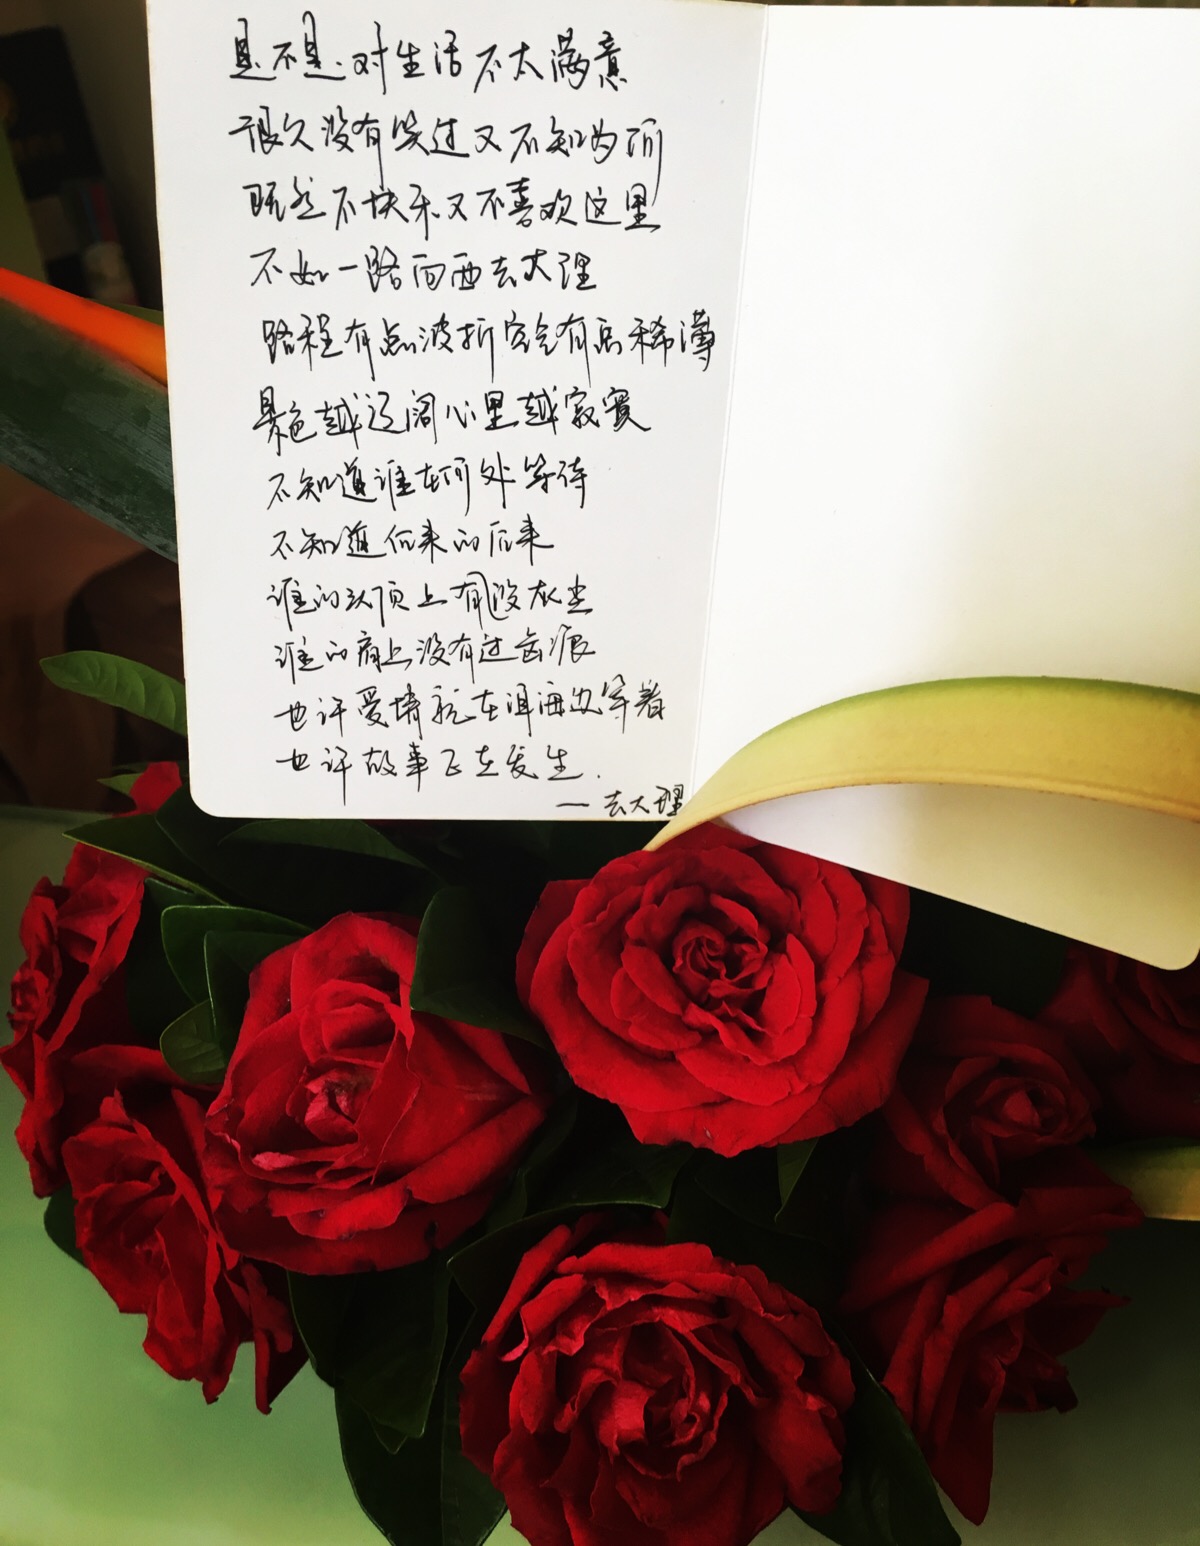 是不是.对生活不太满意
很久没有笑过又不知为何
既然不快乐又不喜欢这里
不如一路向西去大理
路程有点波折空气有点稀薄
景色越辽阔心里越寂寞
不知道谁在何处等待
不知道后来的后来
谁的头顶上有没灰尘
谁的肩上没有过齿痕
也许爱情就在洱海边等着
也许故事正在发生.
— 去大理